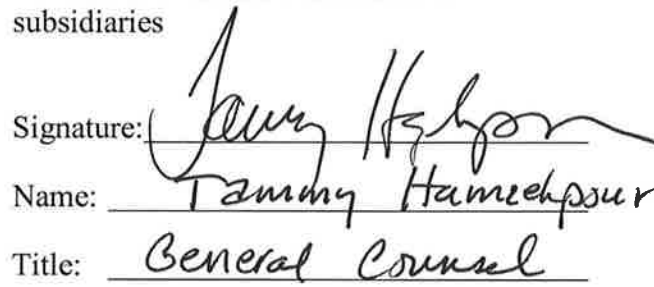 subsidiaries
Signature:
Name: Tammy Hamzehpour
Title: General Counsel